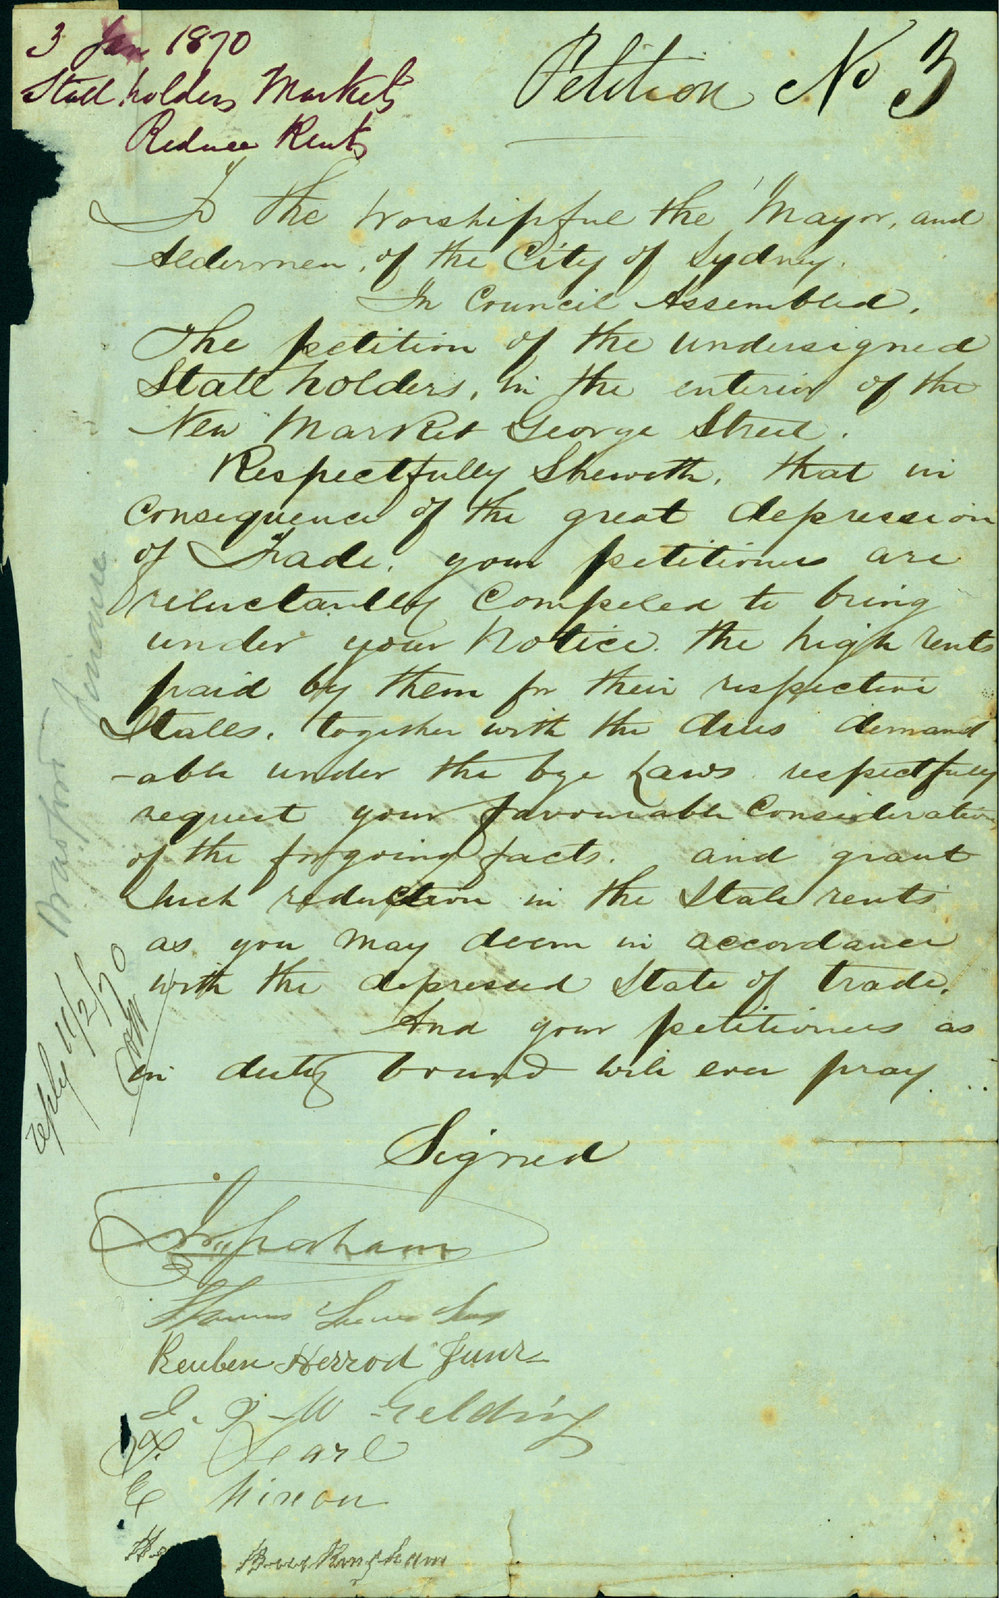 3 Jan 1870
Stall holders Markets
Reduce Rents
Petition No 3
To the Worshipful the Mayor, and
Aldermen, of the City of Sydney.
In Council Assembled.
The petition of the undersigned
Stall holders, in the interior of the
New Market George Street.
Respectfully Sheweth, that in
Consequence of the great depression
of Trade, your petitioners are
reluctantly Compeled to bring
under your Notice the high rents
paid by them for their respective
Stalls, together with the dues demand
-able under the bye Laws respectfully
request your favourable Consideration
of the forgoing facts. and grant
such reduction in the Stall rents
as you may deem in accordance
with the depressed State of trade.
And your petitioners as
in duty bound will ever pray...
Signed
Thomas
Reuben Herrod Junr
J. & W Gelding
Pearl
E Nixon
reply 11/2/70